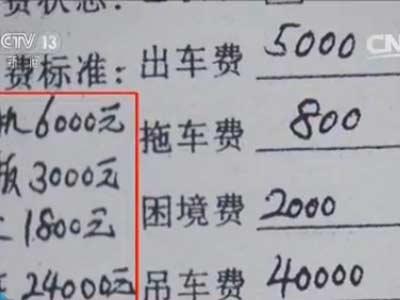 CCTV 13
新闻
费状态:
费标准: 出车费 5000
机 6000元 拖车费 800
板 3000元
1800元 困境费 2000
24000元 吊车费 40000